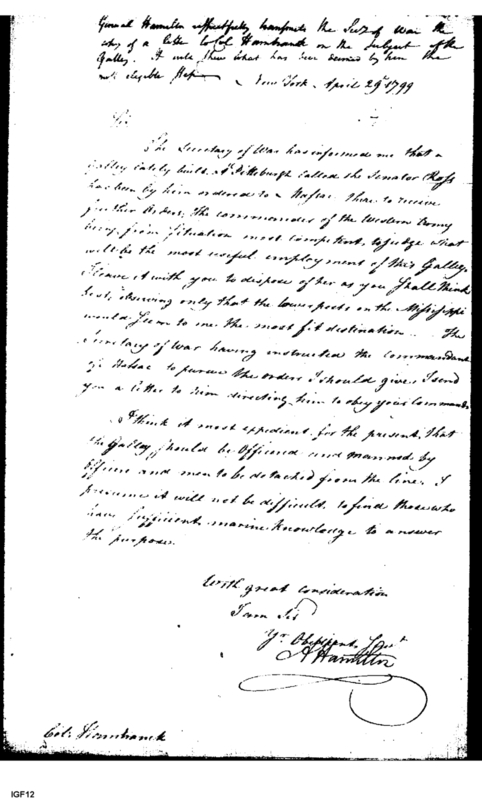 General Hamilton respectfully transmits the Secy of War the
copy of a letter to Col Hamtramck on the subject of the
Galley. It will shew what has been deemed by him the
most eligible step
New York April 29th 1799
Sir
The Secretary of War has informed me that a
Galley lately built at Pittsburgh called the Senator Ross
has been by him ordered to Massac there to receive
further Orders. The commander of the Western Army
being from situation most competent to judge what
will be the most useful employment of this Galley
I leave it with you to dispose of her as you shall think
best, observing only that the lower posts on the Mississippi
would seem to me the most fit destination. The
Secretary of War having instructed the commandant
of Massac to pursue the orders I should give, I send
you a letter to him directing him to obey your commands
I think it most expedient for the present, that
the Galley should be Officered and manned by
Officers and men to be detached from the line. I
presume it will not be difficult to find those who
have sufficient marine knowledge to answer
the purpose.
With great consideration
I am Sir
Yr. Obedient Servt
A Hamilton
Col: Hamtramck
IGF12